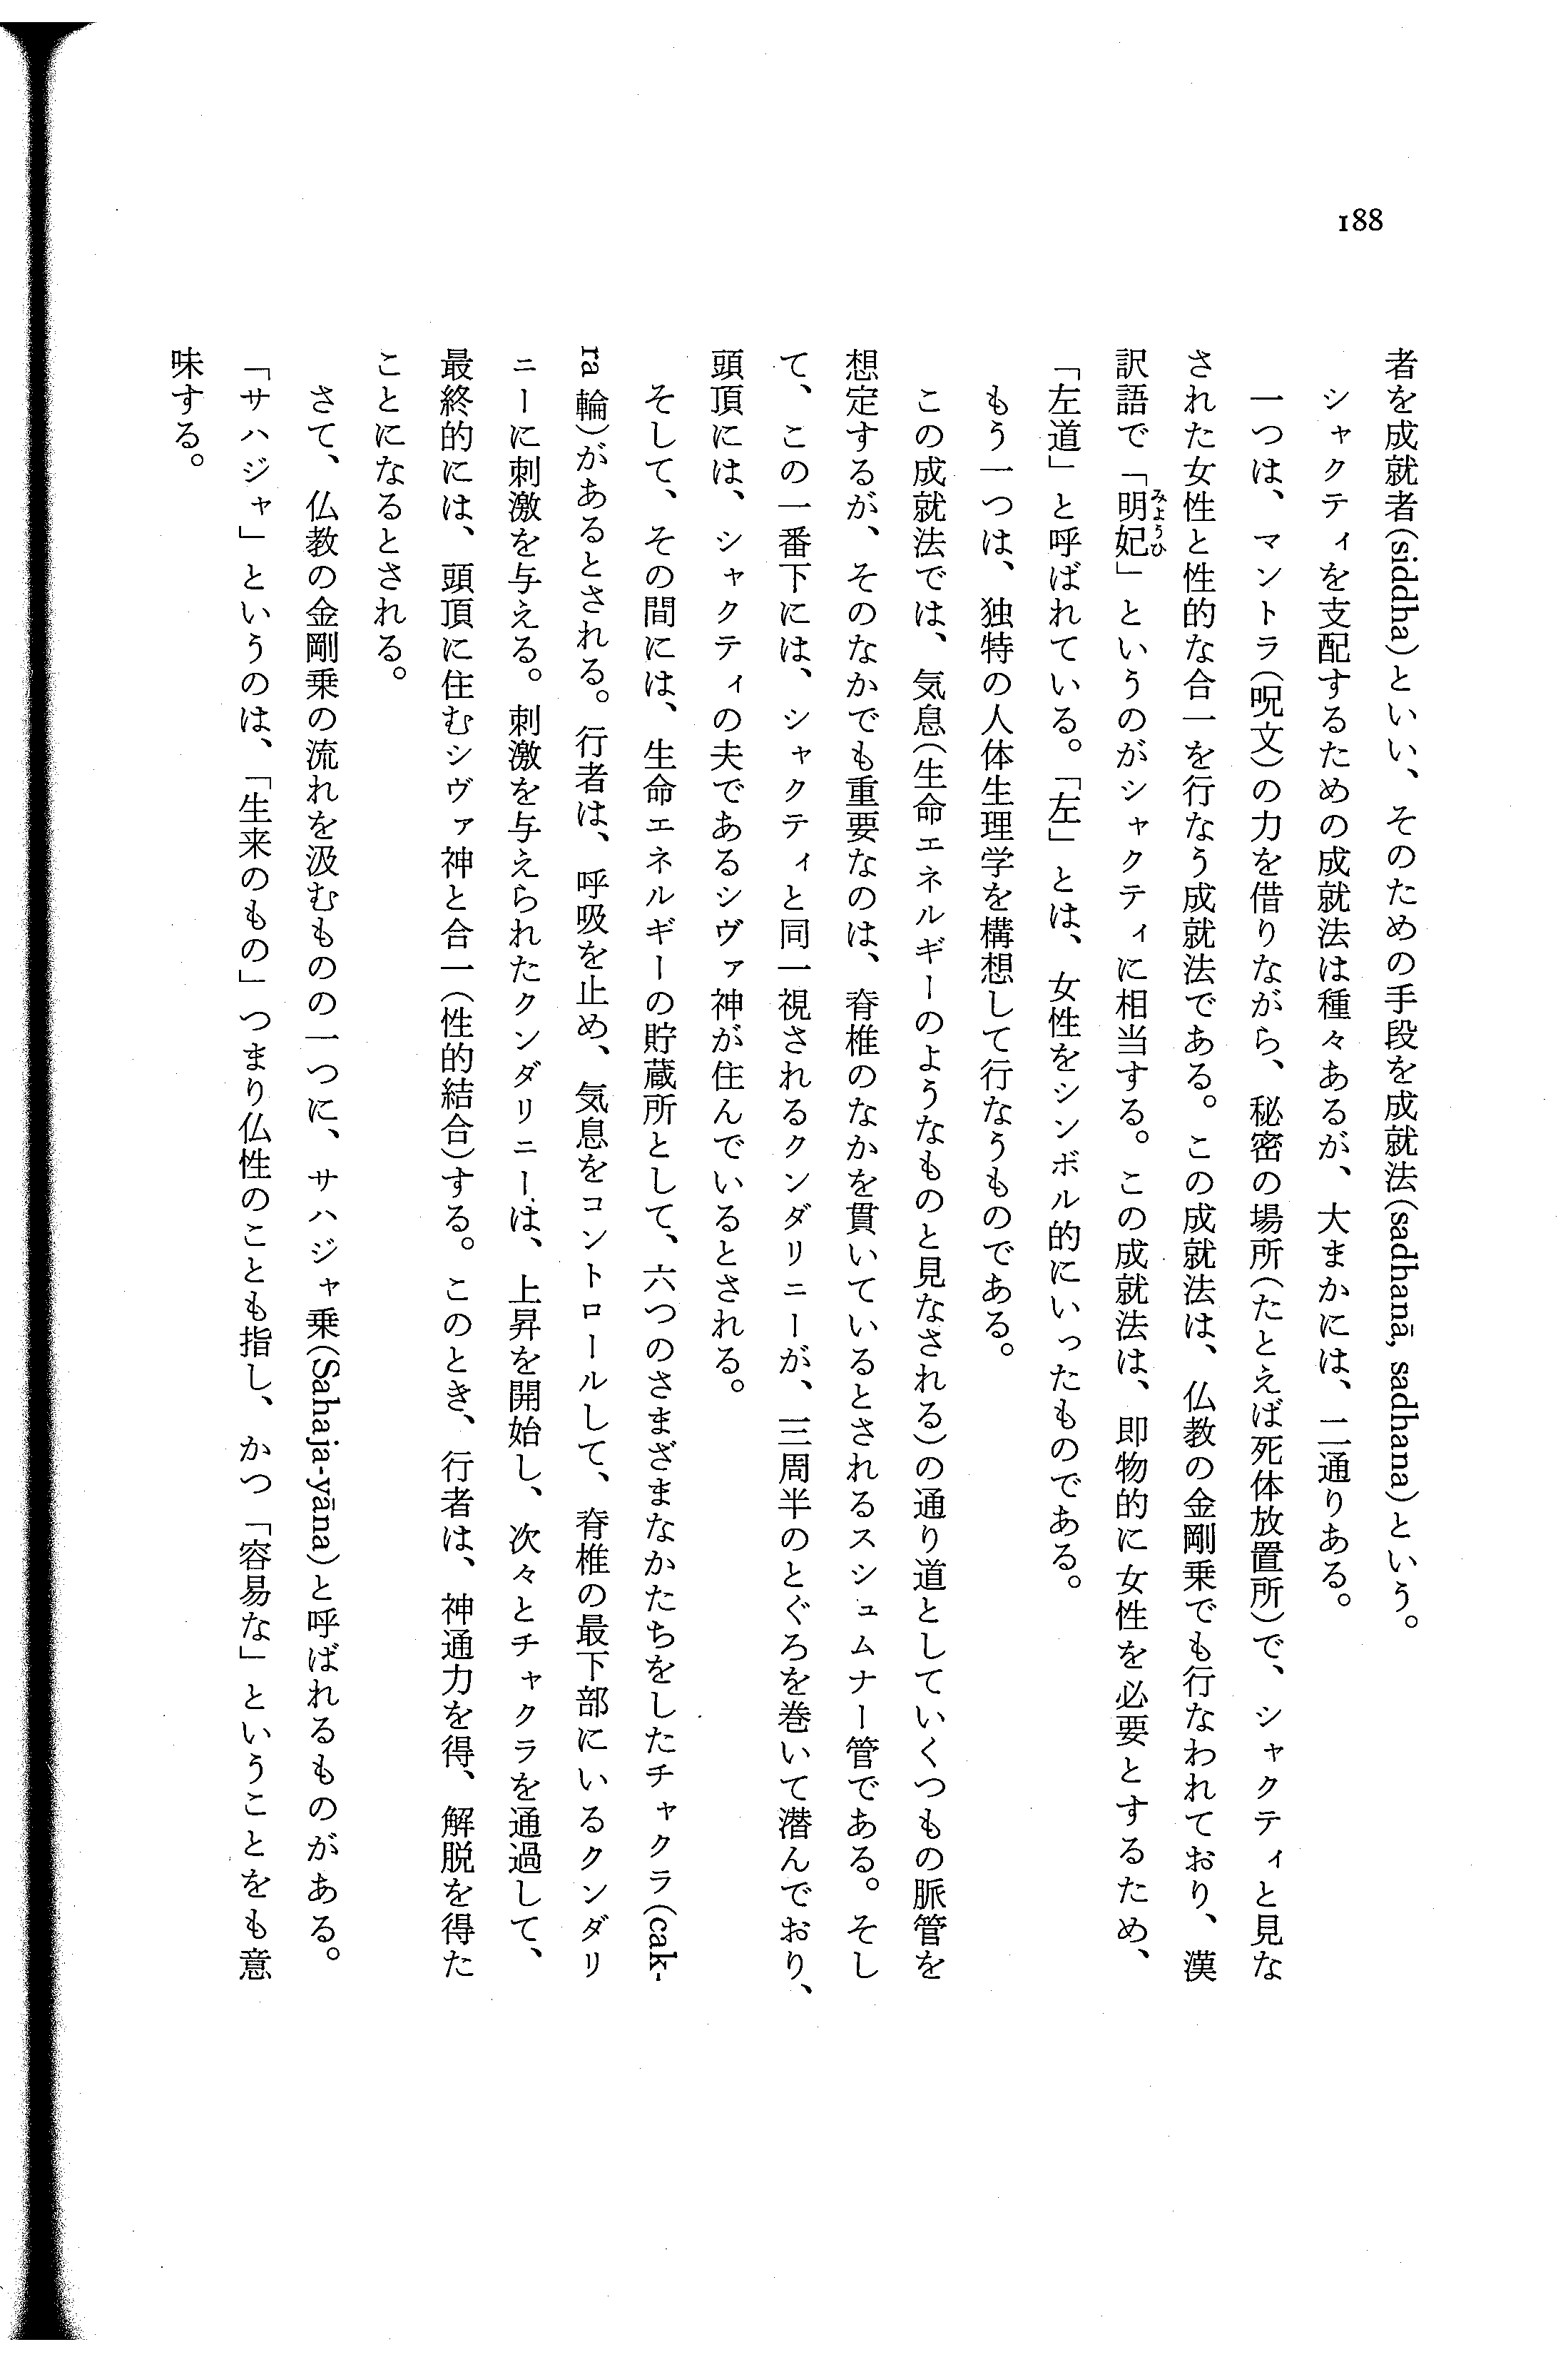 188
者を成就者(siddha)といい、そのための手段を成就法(sadhanā, sadhana)という。
シャクティを支配するための成就法は種々あるが、大まかには、二通りある。
一つは、マントラ(呪文)の力を借りながら、秘密の場所(たとえば死体放置所)で、シャクティと見な
された女性と性的な合一を行なう成就法である。この成就法は、仏教の金剛乗でも行なわれており、漢
訳語で「明妃みようひ」というのがシャクティに相当する。この成就法は、即物的に女性を必要とするため、
「左道」と呼ばれている。「左」とは、女性をシンボル的にいったものである。
もう一つは、独特の人体生理学を構想して行なうものである。
この成就法では、気息(生命エネルギーのようなものと見なされる)の通り道としていくつもの脈管を
想定するが、そのなかでも重要なのは、脊椎のなかを貫いているとされるスシュムナー管である。そし
て、この一番下には、シャクティと同一視されるクンダリニーが、三周半のとぐろを巻いて潜んでおり、
頭頂には、シャクティの夫であるシヴァ神が住んでいるとされる。
そして、その間には、生命エネルギーの貯蔵所として、六つのさまざまなかたちをしたチャクラ(cak-
ra 輪)があるとされる。行者は、呼吸を止め、気息をコントロールして、脊椎の最下部にいるクンダリ
ニーに刺激を与える。刺激を与えられたクンダリニーは、上昇を開始し、次々とチャクラを通過して、
最終的には、頭頂に住むシヴァ神と合一(性的結合)する。このとき、行者は、神通力を得、解脱を得た
ことになるとされる。
さて、仏教の金剛乗の流れを汲むものの一つに、サハジャ乗(Sahaja-yāna)と呼ばれるものがある。
「サハジャ」というのは、「生来のもの」つまり仏性のことも指し、かつ「容易な」ということをも意
味する。